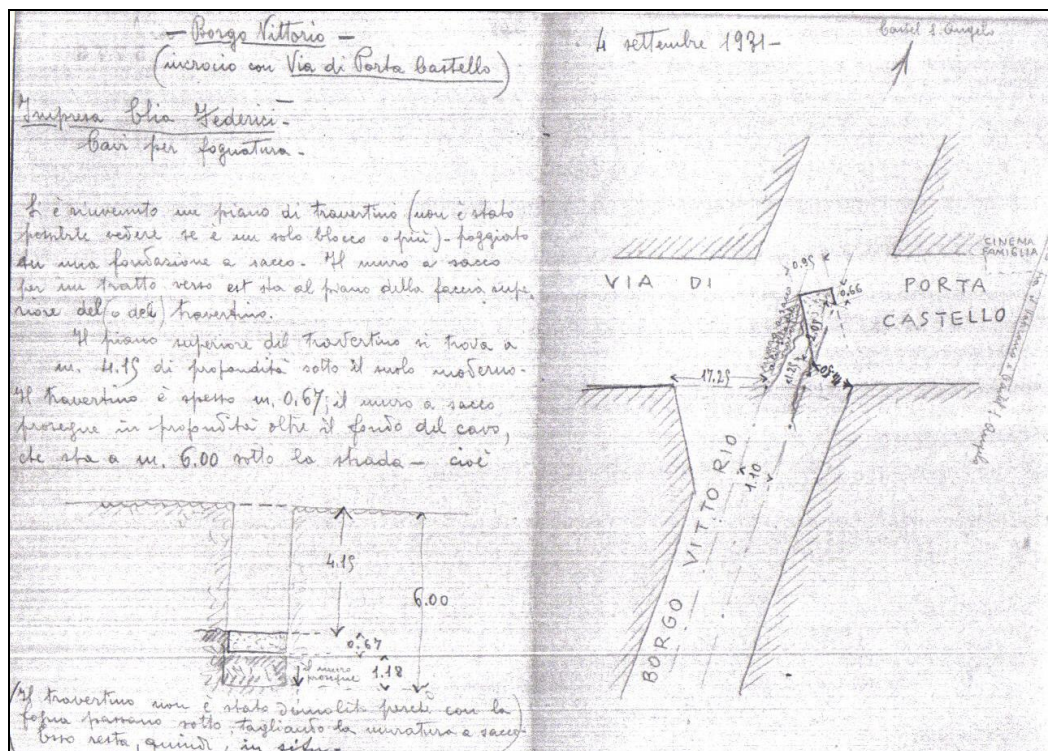 — Borgo Vittorio —
(incrocio con Via di Porta Castello)
Impresa Elia Federici -
Cavi per fognatura -
Si è rinvenuto un piano di travertino (non è stato
possibile vedere se è un solo blocco o più) - poggiato
su una fondazione a sacco. Il muro a sacco
per un tratto verso est sta al piano della faccia supe
riore del (o dei) travertino.
Il piano superiore del travertino si trova a
m. 4.15 di profondità sotto il suolo moderno -
Il travertino è spesso m. 0.67; il muro a sacco
prosegue in profondità oltre il fondo del cavo,
che sta a m. 6.00 sotto la strada — cioè
4.15
6.00
0.67
il muro
prosegue
1.18
(Il travertino non è stato demolito perchè con la
fogna passano sotto, tagliando la muratura a sacco
Esso resta, quindi, in situ
4 settembre 1931 -
Castel S. Angelo
CINEMA
FAMIGLIA
VIA DI PORTA
CASTELLO
0.95
0.66
17.25
1.10
BORGO VITTORIO